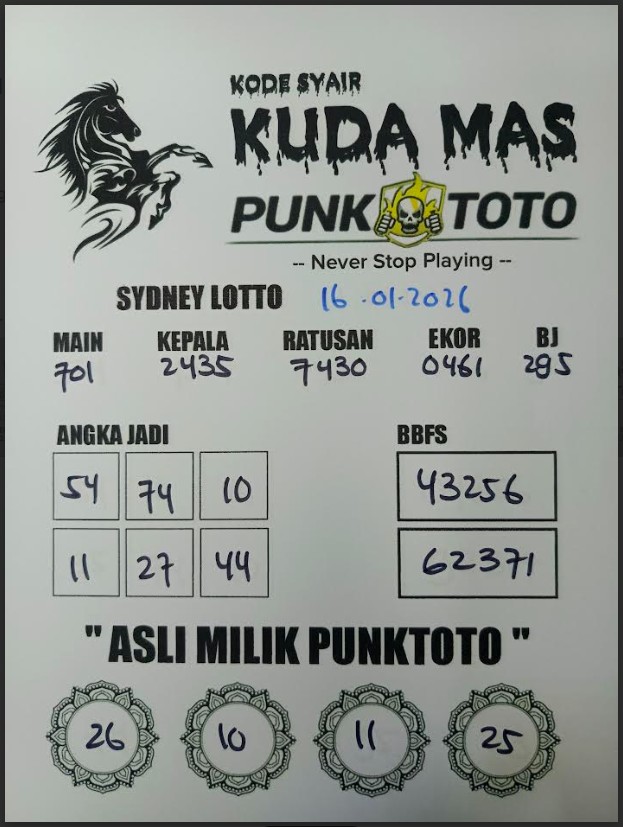 KODE SYAIR
KUDA MAS
PUNK TOTO
-- Never Stop Playing --
SYDNEY LOTTO 16-01-2026
MAIN KEPALA RATUSAN EKOR BJ
701 2435 7430 0461 295
ANGKA JADI BBFS
54 74 10 43256
11 27 44 62371
" ASLI MILIK PUNKTOTO "
26 10 11 25